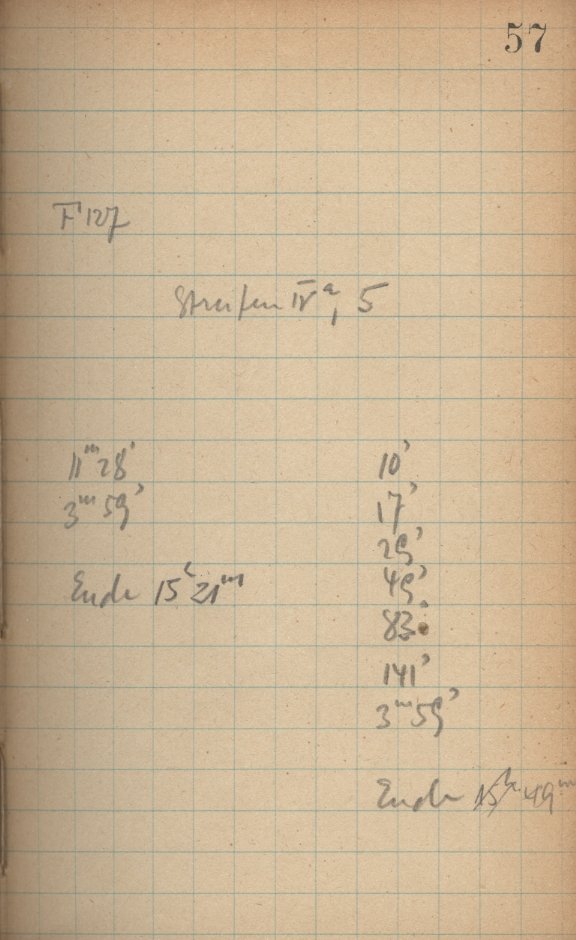 57
F 127
Streifen IVa, 5
11m 28s
3m 59s
Ende 15h 21m
10s
17s
29s
49s
83s
141s
3m 59s
Ende 15h 49m